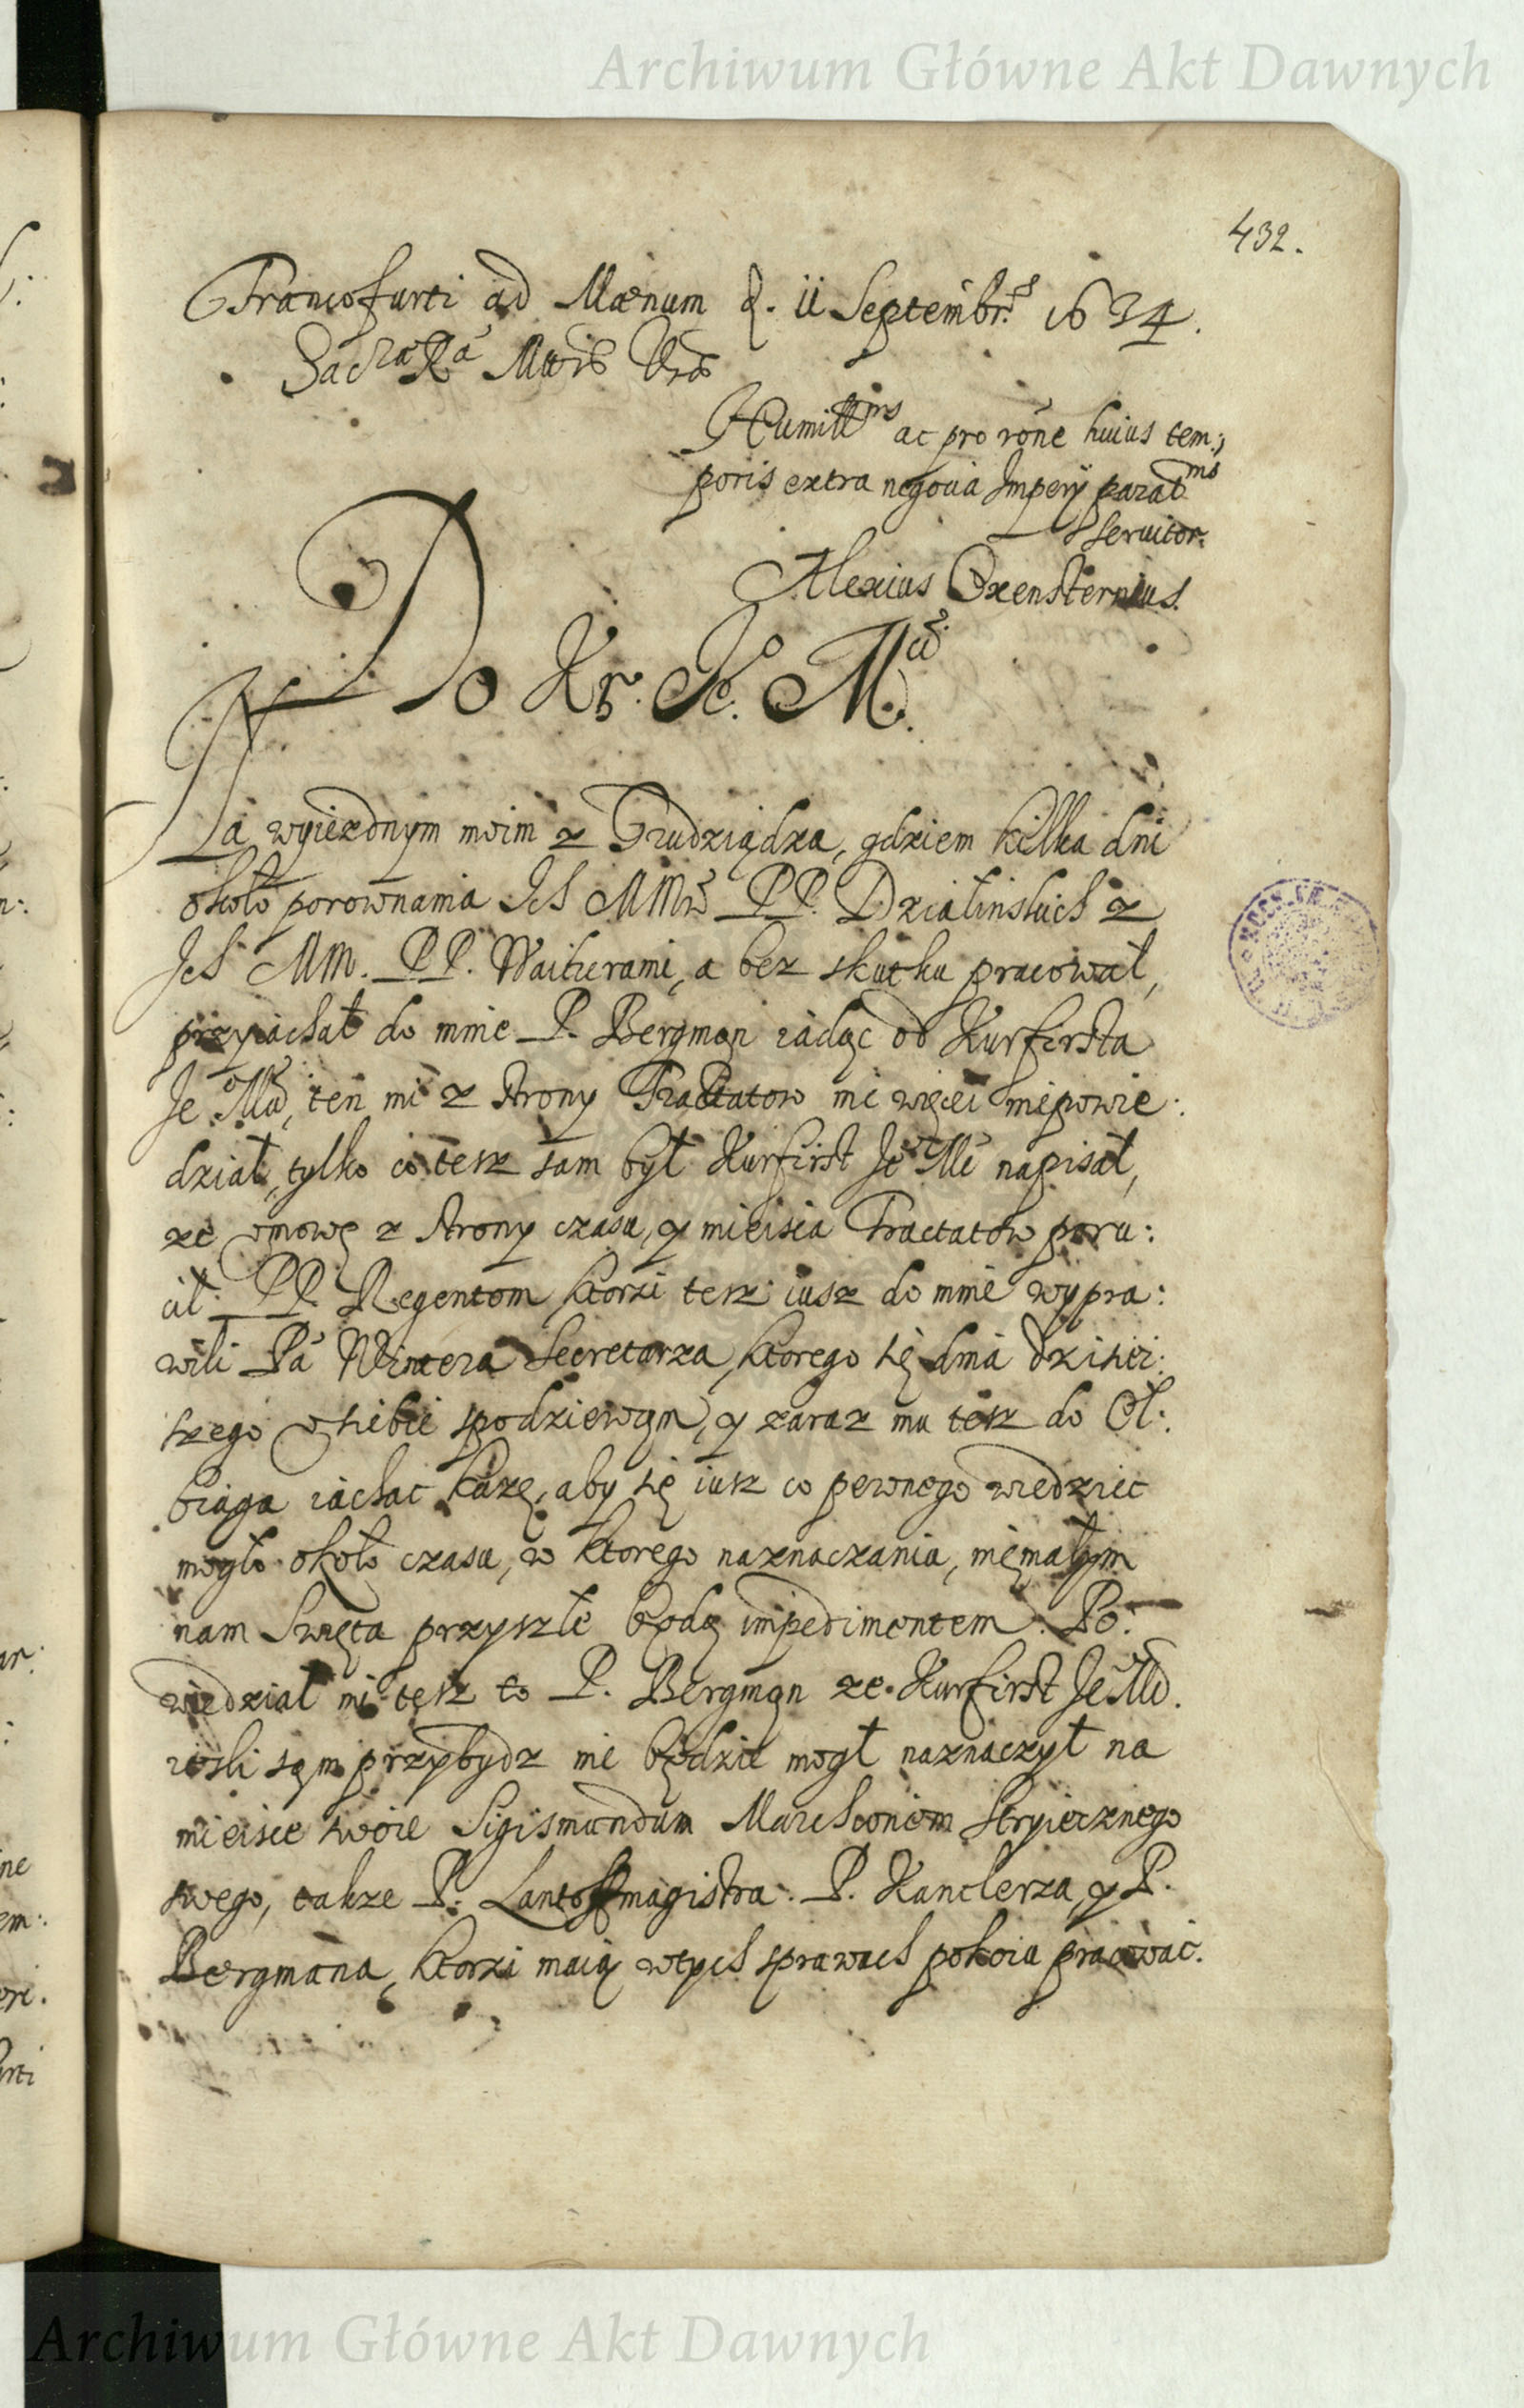 Archiwum Główne Akt Dawnych
432.
Francofurti ad Mœnum d. ii Septembrs 1634.
Sacrae Rae Mttis Vrae
Humillms ac pro rōne huius tem:,
poris extra negocia Imperij paratms
seruitor.
Alexius Oxensternius.
Do Kr. Je°. Mci.
Na wyiezdnym moim z Grudziądza, gdziem kilka dni
około porownania Ich MMw PP. Dzialinskich z
Ich MM. PP. Waiherami, a bez skutku pracował,
przyiachał do mnie P. Bergman iadąc od Kurfirsta
Je Mci, ten mi z strony Tractatow nic więcei niepowie:
dział, tylko co tesz sam był Kurfirst Je Mć napisał,
ze vmowę z strony czasu, y mieisca Tractatow poru:
cił PP. Regentom, ktorzi tesz iusz do mnie wypra:
wili Pa Wintera Secretarza, ktorego się dnia dzisiei:
szego v siebie spodziewam, y zaraz mu tesz do Ol:
bląga iachac kazę, aby się iusz co pewnego wiedziec
mogło około czasu, w ktorego naznaczania, niemałym
nam Swięta przyszłe będą impedimentem. Po:
wiedział mi tesz to P. Bergman ze Kurfirst Je Mć.
iesli sam przybydz nie będzie mogł naznaczył na
mieisce swoie Sigismundum Marchionem Stryiecznego
swego, takze P. Lantoffmagistra. P. Kanclerza, y P.
Bergmana, ktorzi maią wtych sprawach pokoiu pracować.
Archiwum Główne Akt Dawnych